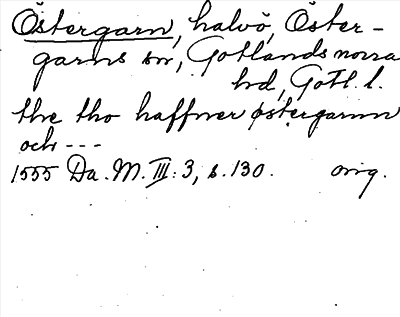 Östergarn, halvö, Öster-
garns sn, Gotlands norra
hd, Gotl. l.
the tho haffner østergarnn
och ---
1555 Da. M. III: 3, s. 130. orig.